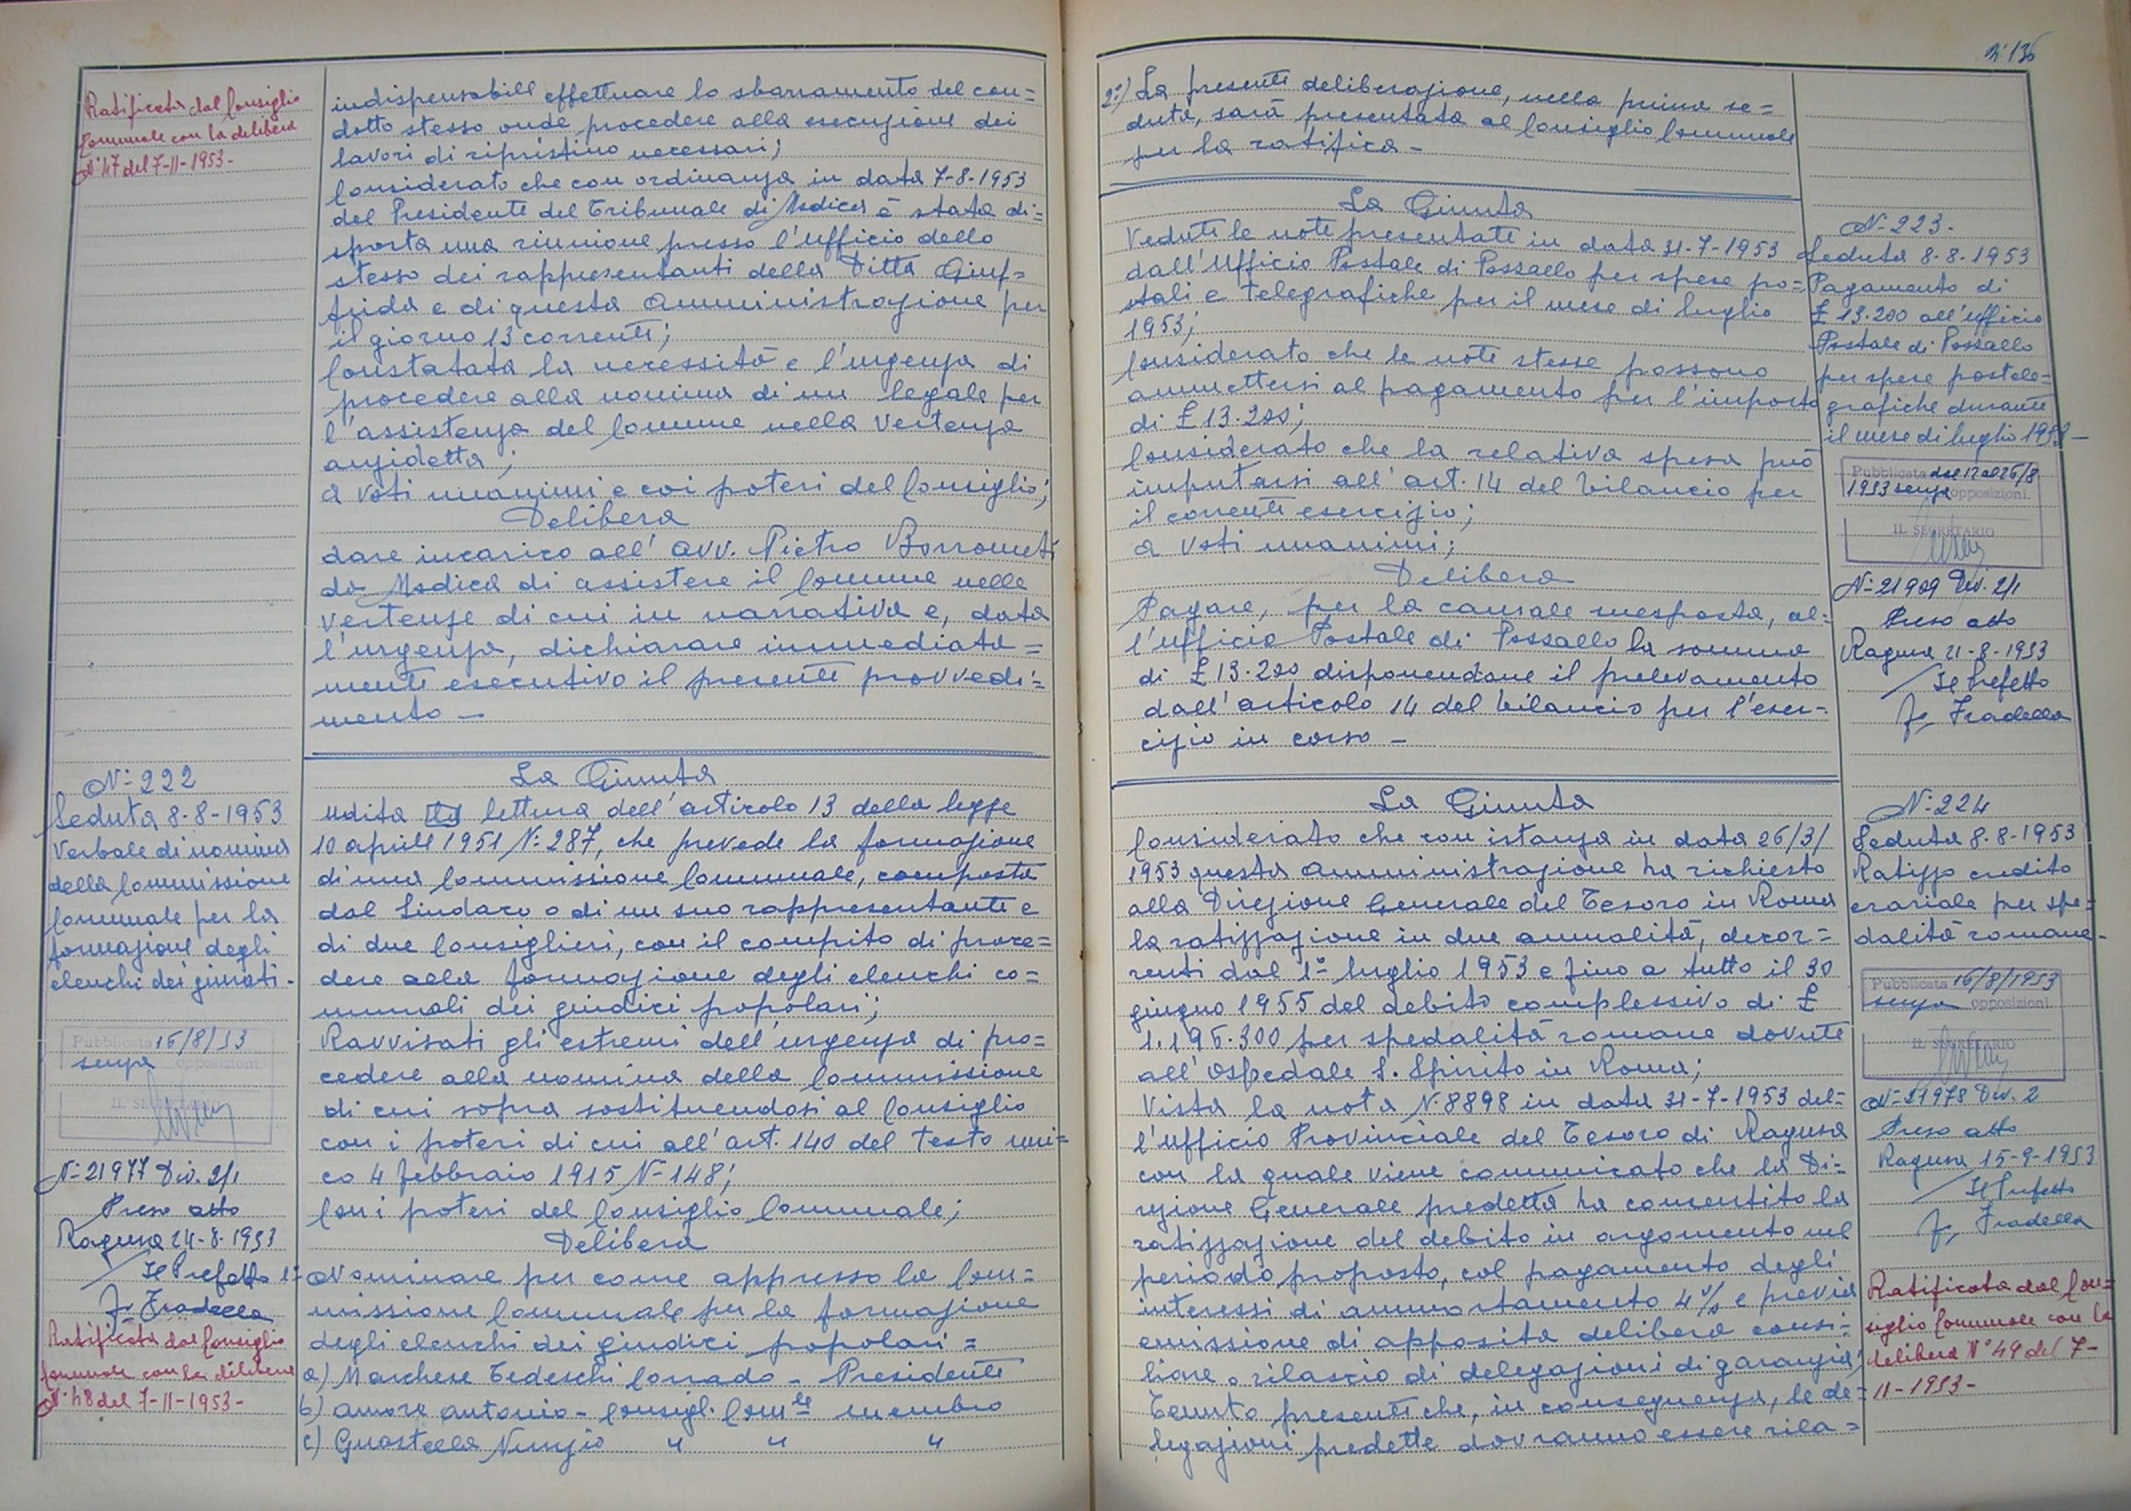 Ratificata dal Consiglio
Comunale con la delibera
N° 47 del 7-11-1953-
indispensabile effettuare lo sbarramento del con=
dotto stesso onde procedere alla esecuzione dei
lavori di ripristino necessari;
Considerato che con ordinanza in data 7-8-1953
del Presidente del Tribunale di Modica è stata di=
sposta una riunione presso l'ufficio dello
stesso dei rappresentanti della Ditta Giuf=
frida e di questa Amministrazione per
il giorno 13 corrente;
Constatata la necessità e l'urgenza di
procedere alla nomina di un legale per
l'assistenza del Comune nella vertenza
anzidetta;
a voti unanimi e coi poteri del Consiglio;
Delibera
dare incarico all' avv. Pietro Borrometi
da Modica di assistere il Comune nelle
vertenze di cui in narrativa e, data
l'urgenza, dichiarare immediata=
mente esecutivo il presente provvedi=
mento -
N° 222
Seduta 8-8-1953
Verbale di nomina
della Commissione
Comunale per la
formazione degli
elenchi dei giurati.
Pubblicata 16/8/53
senza opposizioni.
IL SEGRETARIO
N° 21977 Div. 2/1
Preso atto
Ragusa 24-8-1953
Il Prefetto
f. Fradella
Ratificata dal Consiglio
Comunale con la delibera
N° 48 del 7-11-1953-
La Giunta
Udita la lettura dell'articolo 13 della legge
10 aprile 1951 N° 287, che prevede la formazione
di una Commissione Comunale, composta
dal Sindaco o di un suo rappresentante e
di due Consiglieri, con il compito di proce=
dere alla formazione degli elenchi co=
munali dei giudici popolari;
Ravvisati gli estremi dell'urgenza di pro=
cedere alla nomina della Commissione
di cui sopra sostituendosi al Consiglio
con i poteri di cui all'art. 140 del Testo uni=
co 4 febbraio 1915 N° 148;
Con i poteri del Consiglio Comunale;
Delibera
1° Nominare per come appresso la Com=
missione Comunale per la formazione
degli elenchi dei giudici popolari =
a) Marchese Tedeschi Corrado - Presidente
b) Amore Antonio - Consigl. Com.le membro
c) Guastella Nunzio " " "
N° 136
2°) La presente deliberazione, nella prima se=
duta, sarà presentata al Consiglio Comunale
per la ratifica -
La Giunta
Vedute le note presentate in data 31-7-1953
dall'Ufficio Postale di Pozzallo per spese po=
stali e telegrafiche per il mese di luglio
1953;
Considerato che le note stesse possono
ammettersi al pagamento per l'importo
di £ 13.200;
Considerato che la relativa spesa può
imputarsi all'art. 14 del bilancio per
il corrente esercizio;
a voti unanimi;
Delibera
Pagare, per la causale suesposta, al=
l'ufficio Postale di Pozzallo la somma
di £ 13.200 disponendone il prelevamento
dall'articolo 14 del bilancio per l'eser=
cizio in corso -
N° 223.
Seduta 8-8-1953
Pagamento di
£ 13.200 all'ufficio
Postale di Pozzallo
per spese postele=
grafiche durante
il mese di luglio 1953-
Pubblicata dal 12 al 26/8
1953 senza opposizioni.
IL SEGRETARIO
N° 21909 Div. 2/1
Preso atto
Ragusa 21-8-1953
Il Prefetto
f. Fradella
La Giunta
Considerato che con istanza in data 26/3/
1953 questa Amministrazione ha richiesto
alla Direzione Generale del Tesoro in Roma
la ratizzazione in due annualità, decor=
renti dal 1° luglio 1953 e fino a tutto il 30
giugno 1955 del debito complessivo di £
1.196.300 per spedalità romane dovute
all'Ospedale S. Spirito in Roma;
Vista la nota N. 8898 in data 31-7-1953 del=
l'ufficio Provinciale del Tesoro di Ragusa
con la quale viene comunicato che la Di=
rezione Generale predetta ha consentito la
ratizzazione del debito in argomento nel
periodo proposto, col pagamento degli
interessi di ammortamento 4% e previa
emissione di apposita delibera consi=
liare e rilascio di delegazioni di garanzia;
Tenuto presente che, in conseguenza, le de=
legazioni predette dovranno essere rila=
N° 224
Seduta 8-8-1953
Ratizzo credito
erariale per spe=
dalità romane.
Pubblicata 16/8/1953
senza opposizioni.
IL SEGRETARIO
N° 21978 Div. 2
Preso atto
Ragusa 15-9-1953
Il Prefetto
f. Fradella
Ratificata dal Con=
siglio Comunale con la
delibera N° 49 del 7-
11-1953-